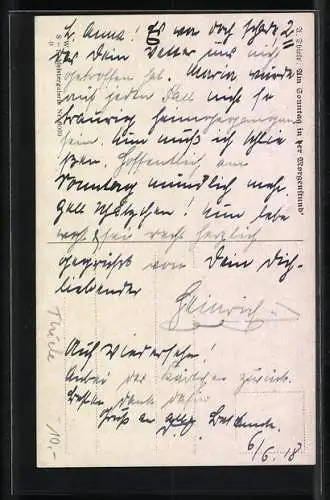 L. Anna! Es war doch schade
das Dein Vetter uns nicht
getroffen hat. Maria wurde
auf jeden Fall nicht so
traurig
sein. Nun muß ich schlie
ßen. Hoffentlich am
Sonntag mündlich mehr.
Gell Schätzchen! Nun lebe
wohl & sei recht herzlich
gegrüßt von Dein Dich-
liebender
Heinrich
Auf Wiedersehn!
Anbei das Kärtchen zurück.
Besten Dank dafür
Gruß an alle Bekannte.
6/6. 18
Thiele
10,-
Am Sonntag in der Morgenstund